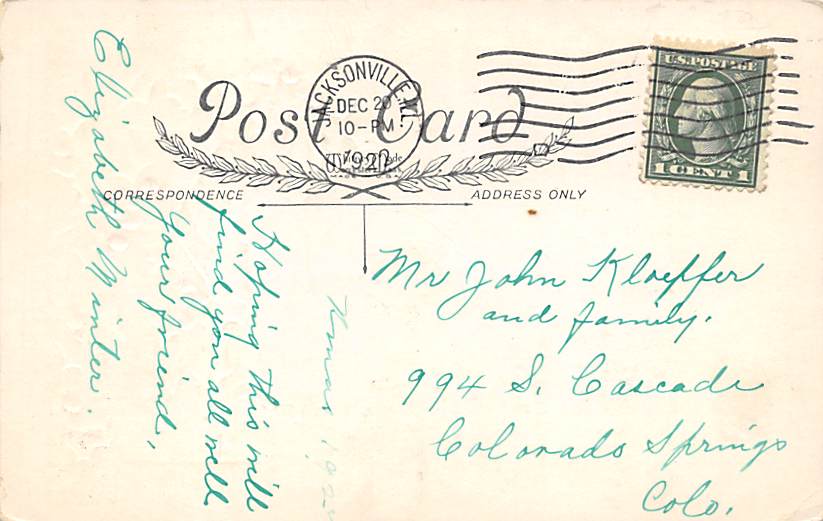 Post Card
JACKSONVILLE, ILL.
DEC 20
10-PM
U.S. POSTAGE
1 CENT 1
CORRESPONDENCE
ADDRESS ONLY
Xmas
Hoping this will
find you all well
Your friend,
Elizabeth Winter.
Mr John Kloeffer
and family.
994 S. Cascade
Colorado Springs
Colo.